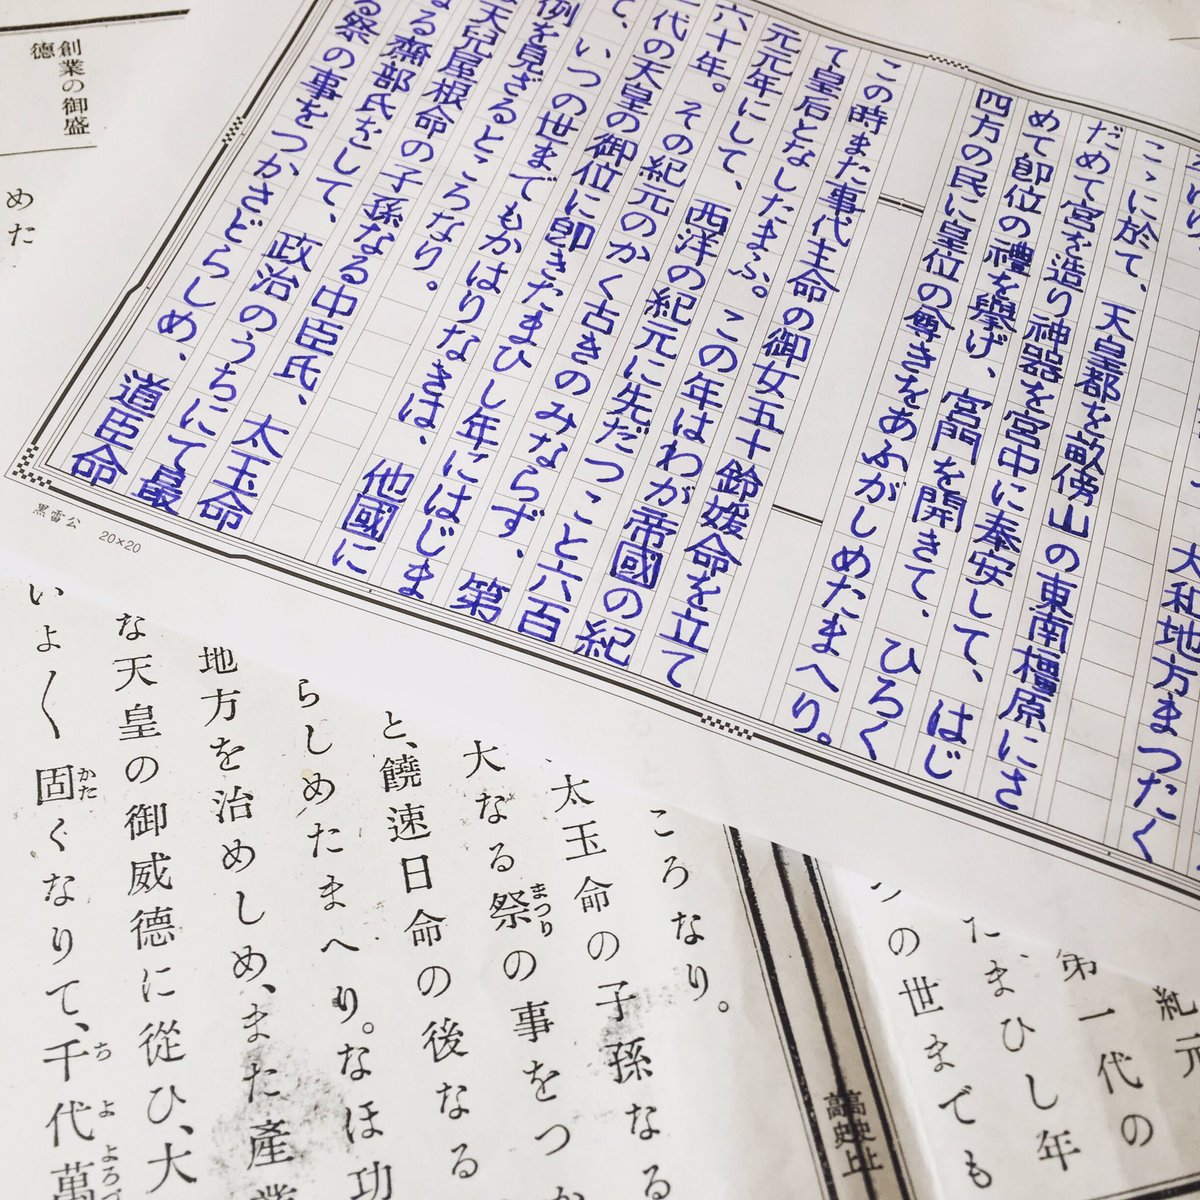 大和地方まつたく
こゝに於て、天皇都を畝傍山の東南橿原にさ
だめて宮を造り神器を宮中に奉安して、はじ
めて卽位の禮を擧げ、宮門を開きて、ひろく
四方の民に皇位の尊きをあふがしめたまへり。
この時また事代主命の御女五十鈴媛命を立て
て皇后となしたまふ。この年はわが帝國の紀
元元年にして、西洋の紀元に先だつこと六百
六十年。その紀元のかく古きのみならず、第
一代の天皇の御位に卽きたまひし年にはじま
て、いつの世までもかはりなきは、他國に
例を見ざるところなり。
天兒屋根命の子孫なる中臣氏、太玉命
なる齋部氏をして、政治のうちにて最
る祭の事をつかさどらしめ、道臣命
黒雷公 20×20
創業の御盛
德
めた
紀元
第一代の
たまひし年
の世までも
高史上
高史上
ころなり。
太玉命の子孫なる
大なる祭の事をつか
まつり
と、饒速日命の後なる
らしめたまへり。なほ功
地方を治めしめ、また產業
な天皇の御威德に從ひ、大
いよ〱固くなりて、千代萬
かた
ち
よ
よろづ